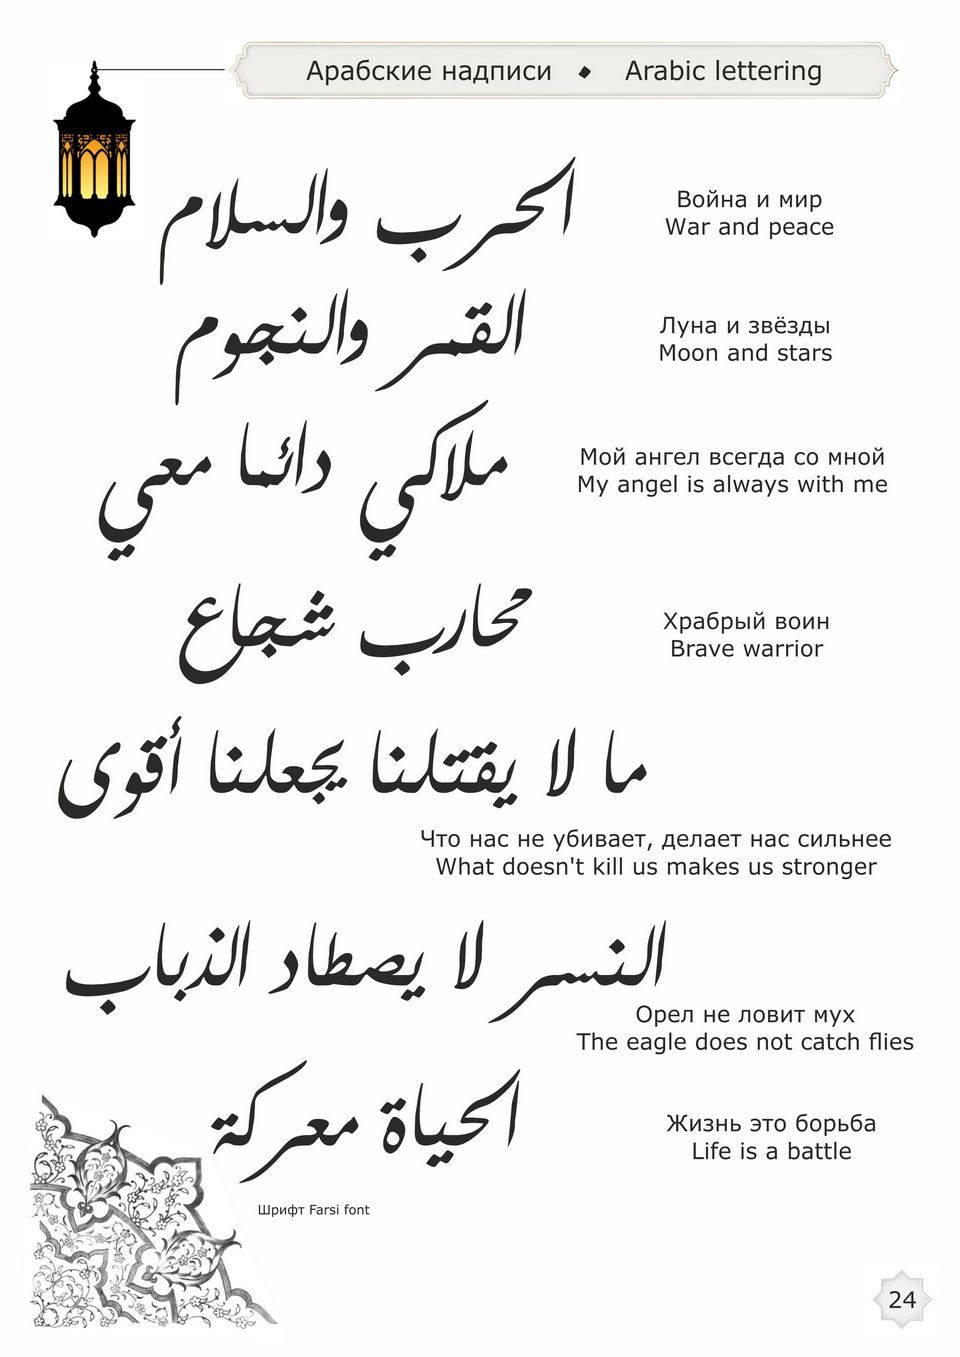 Арабские надписи ◆ Arabic lettering
الحرب والسلام
Война и мир
War and peace
القمر والنجوم
Луна и звёзды
Moon and stars
ملاكي دائما معي
Мой ангел всегда со мной
My angel is always with me
محارب شجاع
Храбрый воин
Brave warrior
ما لا يقتلنا يجعلنا أقوى
Что нас не убивает, делает нас сильнее
What doesn't kill us makes us stronger
النسر لا يصطاد الذباب
Орел не ловит мух
The eagle does not catch flies
الحياة معركة
Жизнь это борьба
Life is a battle
Шрифт Farsi font
24